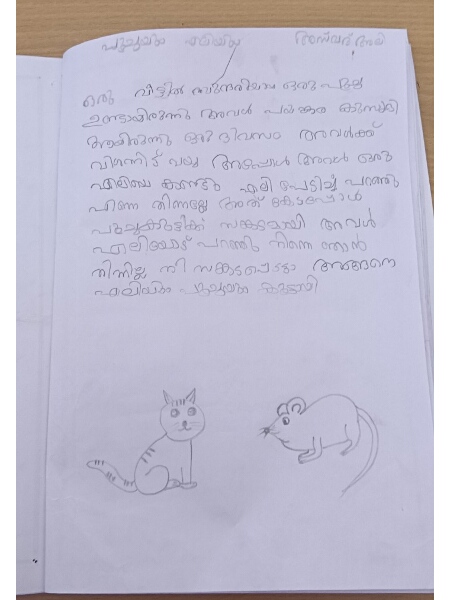 പൂച്ചയും എലിയും അൻവർ അലി
ഒരു വീട്ടിൽ സുന്ദരിയായ ഒരു പൂച്ച
ഉണ്ടായിരുന്നു അവൾ
ആയിരുന്നു ഒരു ദിവസം അവൾക്ക്
വിശന്നിട്ട് വയ്യ അപ്പോൾ അവൾ ഒരു
എലിയെ കണ്ടു എലി പേടിച്ച് പറഞ്ഞു
എന്നെ തിന്നല്ലേ അത് കേട്ടപ്പോൾ
പൂച്ചക്കുട്ടിക്ക് സങ്കടമായി അവൾ
എലിയോട് പറഞ്ഞു നിന്നെ ഞാൻ
തിന്നില്ല നീ സങ്കടപ്പെടണ്ട അങ്ങനെ
എലിയും പൂച്ചയും കൂട്ടായി